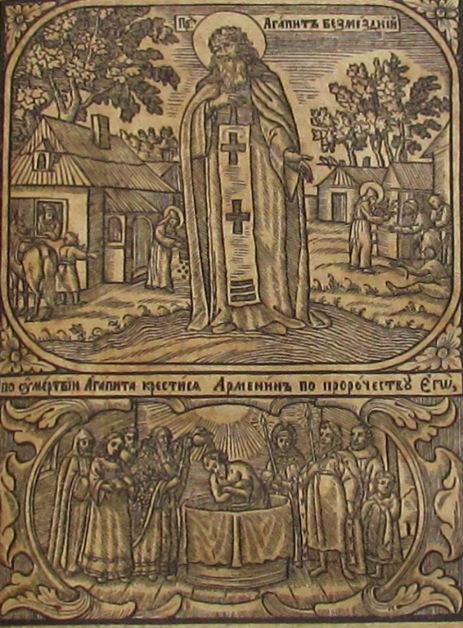 Пр: Агапитъ Безмездній
по сумертвіи Агапита крестися Арменинъ по пророчеству Єгѡ,